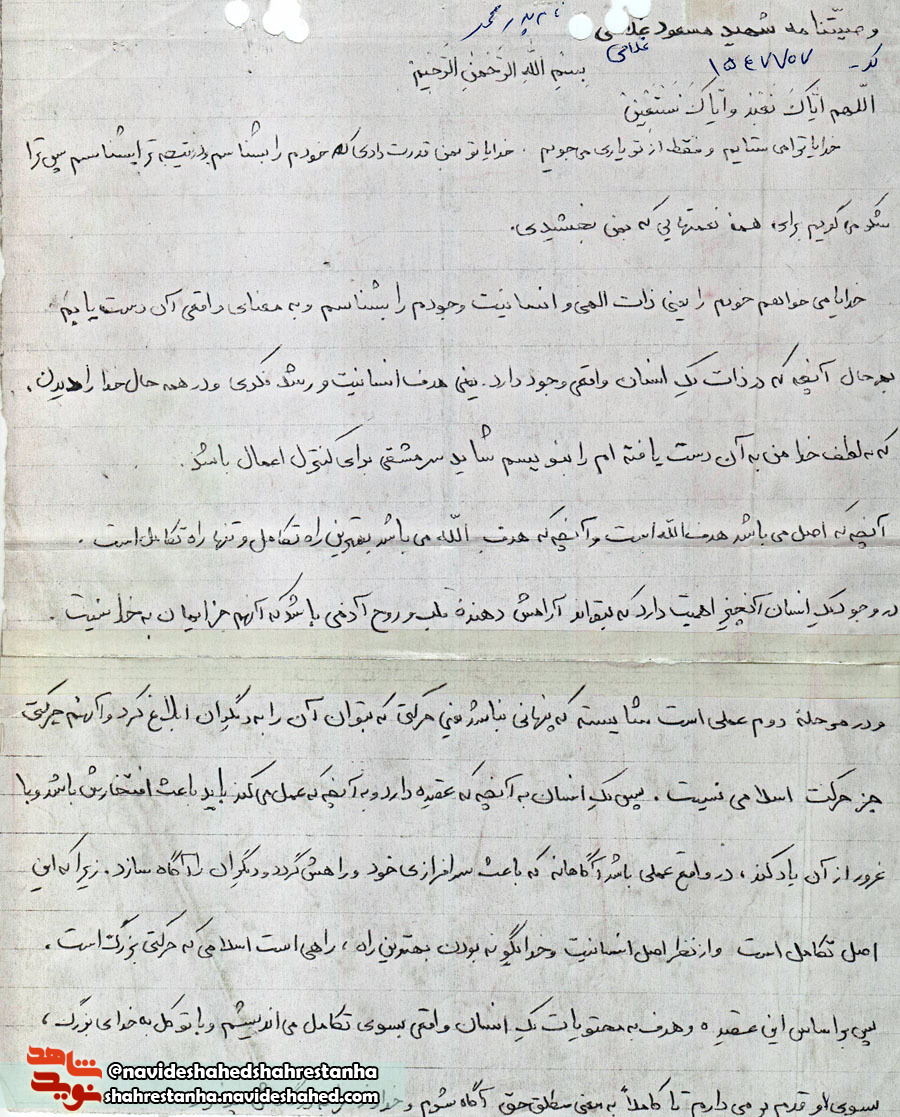 وصیّتنامه شهید مسعود غلامی
نام پدر محمد
غلامی
کد - ۱۵۴۷۷۵۷
بِسْمِ اللَّهِ الرَّحْمنِ الرَّحیمْ
اللّهم ایّاکَ نَعْبُدُ وَ ایّاکَ نَسْتَعینْ
خدایا ترا می ستایم و فقط از تو یاری می جویم . خدایا تو بمن قدرت دادی که خودم را بشناسم و در نتیجه ترا بشناسم پس ترا
شکر می گویم برای همه نعمتهایی که بمن بخشیدی .
خدایا می خواهم خودم را یعنی ذات الهی و انسانیت وجودم را بشناسم و به معنای واقعی آن دست یابم
بهر حال آنچه که در ذات یک انسان واقعی وجود دارد . یعنی هدف انسانیت و رشد فکری و در همه حال خدا را دیدن ،
که به لطف خدا من به آن دست یافته ام را بنویسم شاید سرمشقی برای کنترل اعمال باشد .
آنچه که اصل می باشد هدف الله است و آنچه که هدف الله می باشد بهترین راه تکامل و تنها راه تکامل است .
در وجود یک انسان آنچیز اهمیت دارد که بتواند آرامش دهندهٔ قلب و روح آدمی باشد که آنهم جز ایمان به خدا نیست .
و در مرحلهٔ دوم عملی است شایسته که پنهانی نباشد یعنی حرکتی که بتوان آن را به دیگران ابلاغ کرد و آنهم حرکتی
جز حرکت اسلامی نیست . پس یک انسان به آنچه که عقیده دارد و به آنچه که عمل می کند باید باعث افتخارش باشد و با
غرور از آن یاد کند ، در واقع عملی باشد آگاهانه که باعث سرافرازی خود و راهش گردد و دیگران را آگاه سازد . زیرا که این
اصل تکامل است و از نظر اصل انسانیت و خداگونه بودن بهترین راه ، راهی است اسلامی که حرکتی بزرگ است .
پس بر اساس این عقیده و هدف به محتویات یک انسان واقعی بسوی تکامل می اندیشم و با توکل به خدای بزرگ ،
بسوی او قدم بر می دارم تا کاملاً به معنی مطلق حق آگاه شوم و
شاهد
نوید
@navideshahedshahrestanha
shahrestanha.navideshahed.com